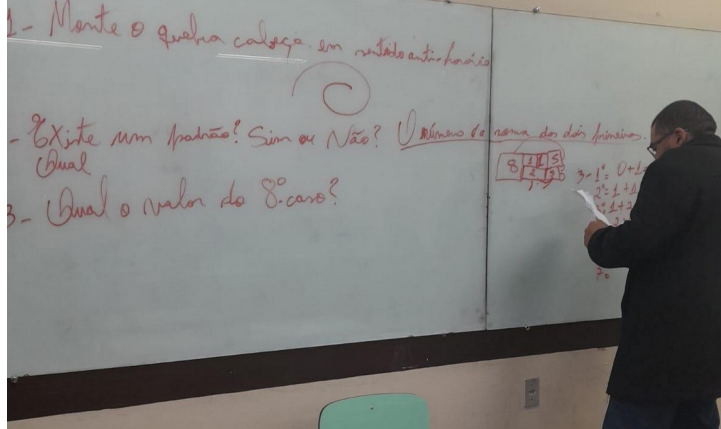 1- Monte o quebra cabeça em sentido anti-horário
- Existe um padrão? Sim ou Não? O número é a soma dos dois primeiros.
Qual
3- Qual o valor do 8º caso?
8 1 1 5
2 3
3- 1º= 0+1
2º= 1+1
1+2
7º